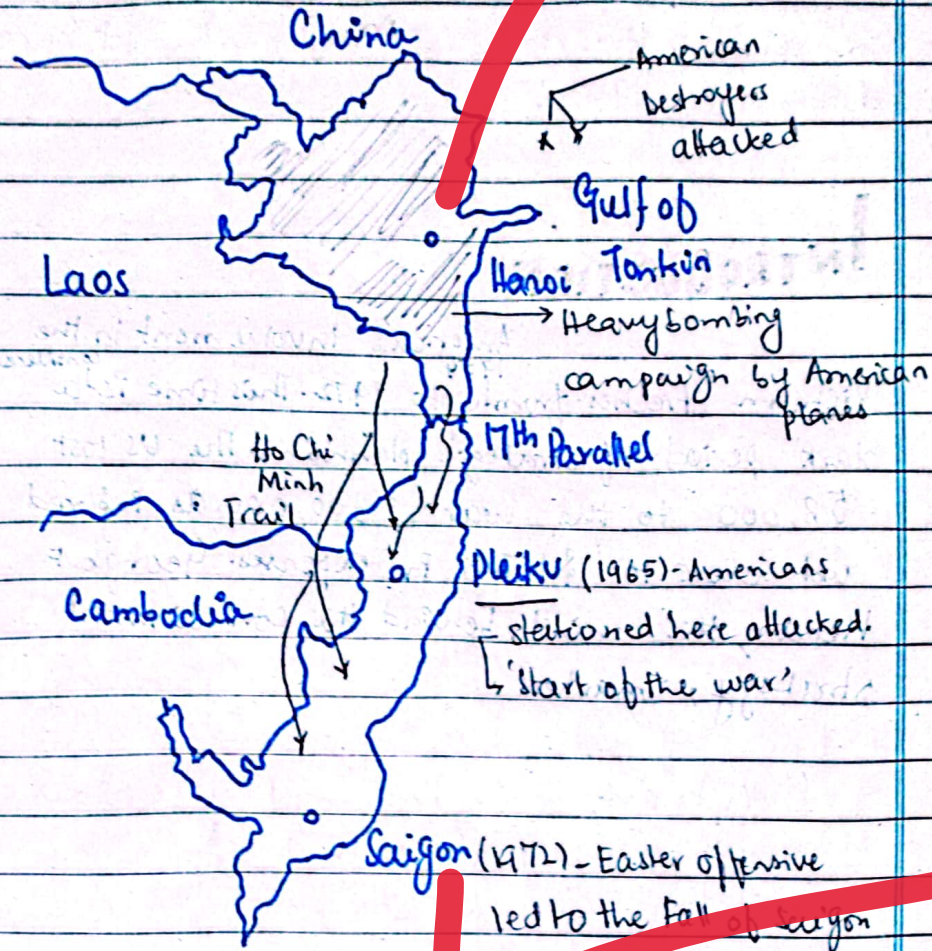 China
American
Destroyers
attacked
Gulf of
Tonkin
Hanoi
Laos
Heavy bombing
campaign by American
planes
17th Parallel
Ho Chi
Minh
Trail
Pleiku (1965) - Americans
stationed here attacked.
'start of the war'
Cambodia
Saigon (1972) - Easter offensive
led to the Fall of Saigon